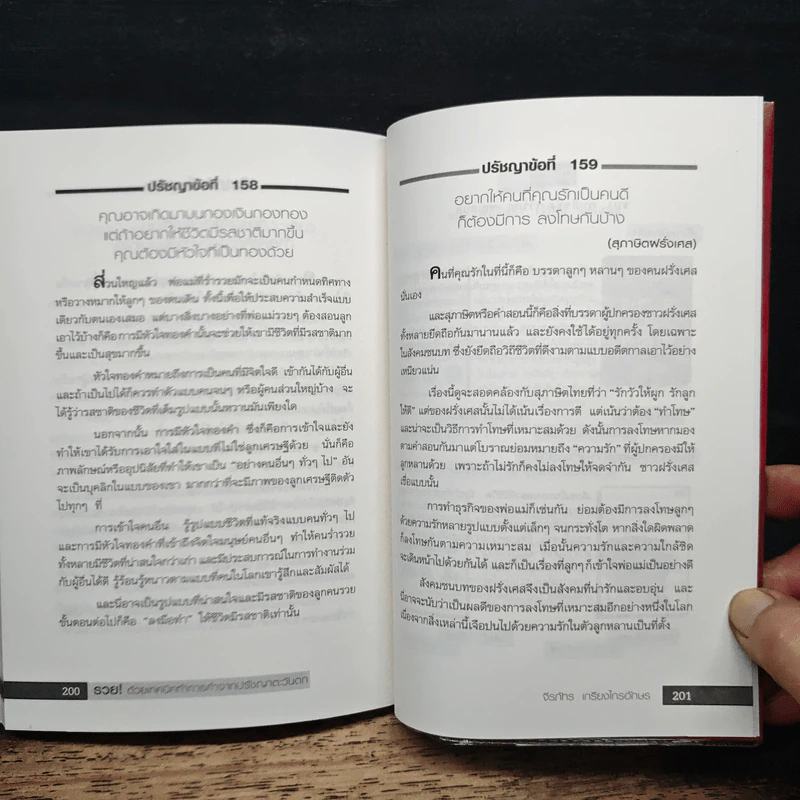 ปรัชญาข้อที่ 158
คุณอาจเกิดมาบนกองเงินกองทอง
แต่ถ้าอยากให้ชีวิตมีรสชาติมากขึ้น
คุณต้องมีหัวใจที่เป็นทองด้วย
ส่วนใหญ่แล้ว พ่อแม่ที่ร่ำรวยมักจะเป็นคนกำหนดทิศทาง
หรือวางหมากให้ลูกๆ ของตนเดิน ทั้งนี้เพื่อให้ประสบความสำเร็จแบบ
เดียวกับตนเองเสมอ แต่บางสิ่งบางอย่างที่พ่อแม่รวยๆ ต้องสอนลูก
เอาไว้บ้างก็คือ การมีหัวใจทองคำนั้นจะช่วยให้เขามีชีวิตที่มีรสชาติมาก
ขึ้นและเป็นสุขมากขึ้น
หัวใจทองคำหมายถึงการเป็นคนที่มีจิตใจดี เข้ากันได้กับผู้อื่น
และถ้าเป็นไปได้ก็ควรทำตัวแบบคนจนๆ หรือผู้คนส่วนใหญ่บ้าง จะ
ได้รู้ว่ารสชาติของชีวิตที่เต็มรูปแบบนั้นหวานมันเพียงใด
นอกจากนั้น การมีหัวใจทองคำ ซึ่งก็คือการเข้าใจและยัง
ทำให้เขาได้รับการเอาใจใส่ในแบบที่ไม่ใช่ลูกเศรษฐีด้วย นั่นก็คือ
ภาพลักษณ์หรืออุปนิสัยที่ทำให้เขาเป็น "อย่างคนอื่นๆ ทั่วๆ ไป" อัน
จะเป็นบุคลิกในแบบของเขา มากกว่าที่จะมีภาพของลูกเศรษฐีติดตัว
ไปทุกๆ ที่
การเข้าใจคนอื่น รู้รูปแบบชีวิตที่แท้จริงแบบคนทั่วๆ ไป
และการมีหัวใจทองคำที่เข้าถึงจิตใจมนุษย์คนอื่นๆ ทำให้คนร่ำรวย
ทั้งหลายมีชีวิตที่น่าสนใจกว่าเก่า และมีประสบการณ์ในการทำงานร่วม
กับผู้อื่นได้ดี รู้ร้อนรู้หนาวตามแบบที่คนในโลกเขารู้สึกและสัมผัสได้
และนี่อาจเป็นรูปแบบที่น่าสนใจและมีรสชาติของลูกคนรวย
ขั้นตอนต่อไปก็คือ "ลงมือทำ" ให้ชีวิตมีรสชาติเท่านั้น
200 รวย! ด้วยเทคนิคทำการค้าจากปรัชญาตะวันตก
ปรัชญาข้อที่ 159
อยากให้คนที่คุณรักเป็นคนดี
ก็ต้องมีการ ลงโทษกันบ้าง
(สุภาษิตฝรั่งเศส)
คนที่คุณรักในที่นี้ก็คือ บรรดาลูกๆ หลานๆ ของคนฝรั่งเศส
นั่นเอง
และสุภาษิตหรือคำสอนนี้ก็คือสิ่งที่บรรดาผู้ปกครองชาวฝรั่งเศส
ทั้งหลายยึดถือกันมานานแล้ว และยังคงใช้ได้อยู่ทุกครั้ง โดยเฉพาะ
ในสังคมชนบท ซึ่งยังยึดถือวิถีชีวิตที่ดีงามตามแบบอดีตกาลเอาไว้อย่าง
เหนียวแน่น
เรื่องนี้ดูจะสอดคล้องกับสุภาษิตไทยที่ว่า "รักวัวให้ผูก รักลูก
ให้ตี" แต่ของฝรั่งเศสนั้นไม่ได้เน้นเรื่องการตี แต่เน้นว่าต้อง "ทำโทษ"
และน่าจะเป็นวิธีการทำโทษที่เหมาะสมด้วย ดังนั้นการลงโทษหากมอง
ตามคำสอนกันมาแต่โบราณย่อมหมายถึง "ความรัก" ที่ผู้ปกครองมีให้
ลูกหลานด้วย เพราะถ้าไม่รักก็คงไม่ลงโทษให้จดจำกัน ชาวฝรั่งเศส
เชื่อแบบนั้น
การทำธุรกิจของพ่อแม่ก็เช่นกัน ย่อมต้องมีการลงโทษลูกๆ
ด้วยความรักหลายรูปแบบตั้งแต่เล็กๆ จนกระทั่งโต หากสิ่งใดผิดพลาด
ก็ลงโทษกันตามความเหมาะสม เมื่อนั้นความรักและความใกล้ชิด
จะเดินหน้าไปด้วยกันได้ และก็เป็นเรื่องที่ลูกๆ ก็เข้าใจพ่อแม่เป็นอย่างดี
สังคมชนบทของฝรั่งเศสจึงเป็นสังคมที่น่ารักและอบอุ่น และ
นี่อาจจะนับว่าเป็นผลดีของการลงโทษที่เหมาะสมอีกอย่างหนึ่งในโลก
เนื่องจากสิ่งเหล่านี้เจือปนไปด้วยความรักในตัวลูกหลานเป็นที่ตั้ง
จีรภัทร เกรียงไกรอักษร 201